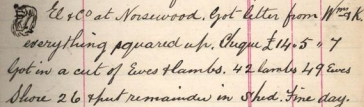 El & Co at Norsewood. Got letter from Wms & K
everything squared up. Cheque £14-5"7
Got in a cut of Ewes & Lambs. 42 lambs 49 Ewes
Shore 26 & put remainder in shed. Fine day.